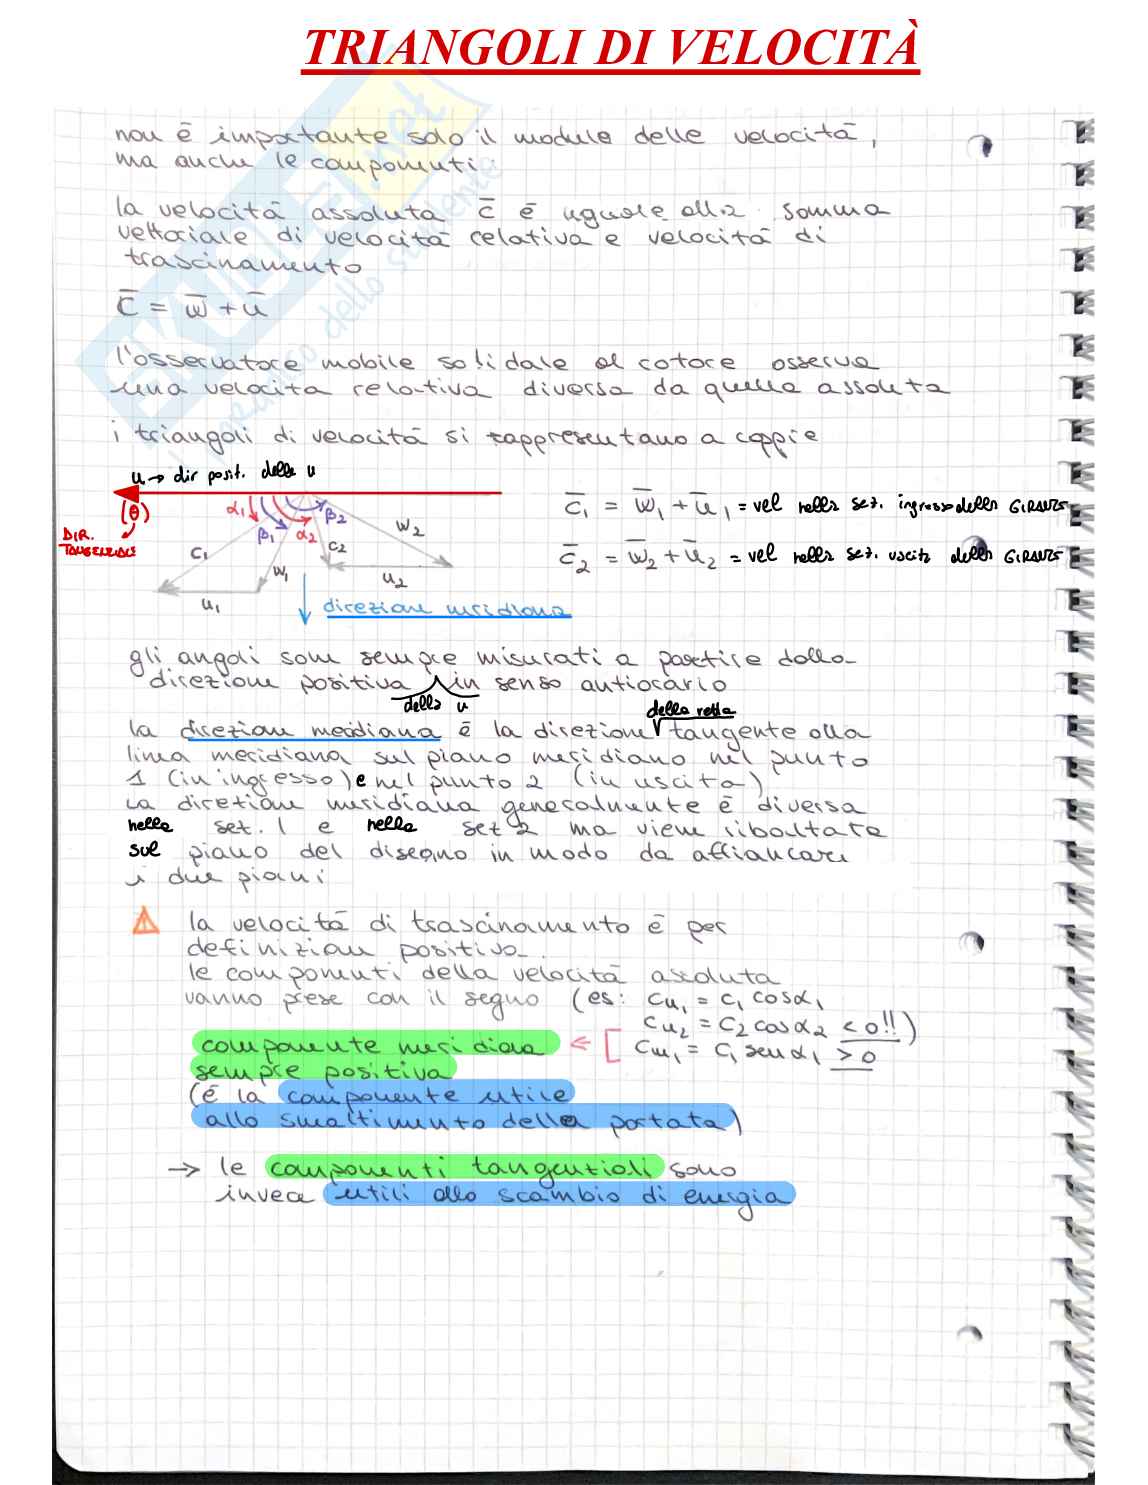 TRIANGOLI DI VELOCITÀ
non è importante solo il modulo delle velocità,
ma anche le componenti
la velocità assoluta c̅ è uguale alla somma
vettoriale di velocità relativa e velocità di
trascinamento
c̅ = w̅ + u̅
l'osservatore mobile solidale al rotore osserva
una velocità relativa diversa da quella assoluta
i triangoli di velocità si rappresentano a coppie
u → dir posit. della u
(θ)
DIR. TANGENZIALE
α₁ β₁ α₂ β₂
c₁ w₁ c₂ w₂
u₁ u₂
direzione meridiana
c̅₁ = w̅₁ + u̅₁ = vel nella sez. ingresso della GIRANTE
c̅₂ = w̅₂ + u̅₂ = vel nella sez. uscita della GIRANTE
gli angoli sono sempre misurati a partire dalla
direzione positiva della u in senso antiorario
la direzione meridiana è la direzione della retta tangente alla
linea meridiana sul piano meridiano nel punto
1 (in ingresso) e nel punto 2 (in uscita)
La direzione meridiana generalmente è diversa
nella sez. 1 e nella sez 2 ma viene ribaltata
sul piano del disegno in modo da affiancare
i due piani
la velocità di trascinamento è per
definizione positiva.
le componenti della velocità assoluta
vanno prese con il segno (es: cu₁ = c₁ cosα₁
cu₂ = c₂ cosα₂ < 0!!)
componente meridiana ← [ cm₁ = c₁ senα₁ > 0
sempre positiva
(è la componente utile
allo smaltimento della portata)
→ le componenti tangenziali sono
invece utili allo scambio di energia
SKUOLA.net
dello studente